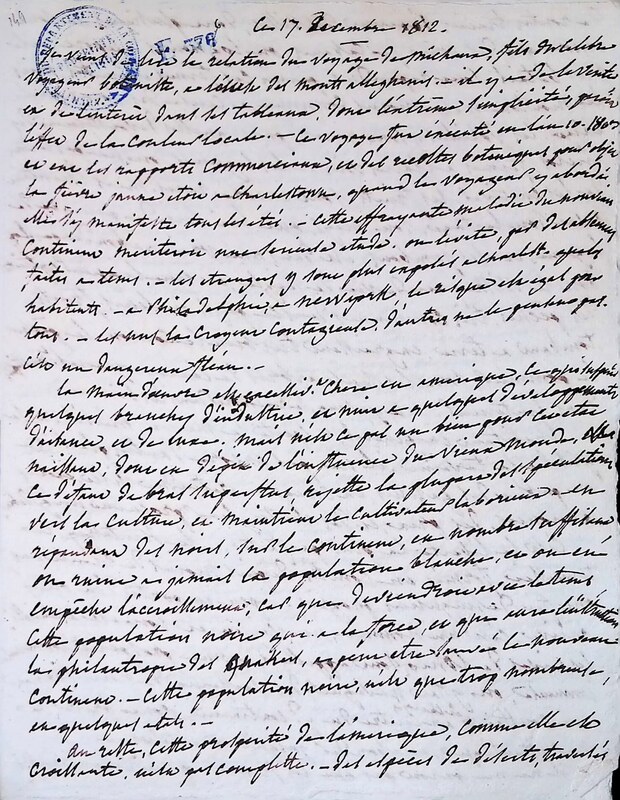 149
6
Ce 17. Decembre 1812.
E 576
DEPARTEMENT DE LA
Je viens de lire la relation du voyage de Michaux, fils du celebre
voyageur botaniste, a l'ouest des monts alleghanis. — il y a de la verité
et de l'interêt dans ses tableaux, dont l'extrême simplicité,
l'effet de la couleur locale. — Ce voyage fut exécuté en l'an 10. 1802
et eut les rapports commerciaux, et des recoltes botaniques pour objet
la fievre jaune etoit a Charlestown, quand le voyageur y aborda
elle s'y manifeste tous les etés. — Cette effrayante maladie du nouveau
Continent meriteroit une serieuse etude. on l'évite, par des absences
faites a tems. — les etrangers y sont plus exposés a Charlest. que les
habitants. — a Philadelphie, a Newyork, le risque est égal pour
tous. — les uns la croyent contagieuse, d'autres ne le pensent pas.
c'est un dangereux fléau. —
la main d'œuvre est excessivt. Chere en amerique, ce qui
quelques branches d'industrie, et nuit a quelques développements
d'aisance et de luxe. mais n'est ce pas un bien pour cet etat
naissant, dont en dépit de l'influence du vieux monde,
ce défaut de bras superflus, rejette la plupart des spéculations
vers la culture, et maintient le cultivateur laborieux. en
répandant des noirs, sur le continent, en nombre suffisant
on ruine a jamais la population blanche, et on en
empêche l'accroissement, car que deviendroit avec le tems
cette population noire qui a la force, et qui aura l'instruction
la philantropie des Quakers, a peut etre sauvé le nouveau
Continent. — Cette population noire, n'est que trop nombreuse,
en quelques etats. —
au reste, cette prospérité de l'amérique, comme elle est
croissante, n'est pas complette. — des espèces de déserts, traversés